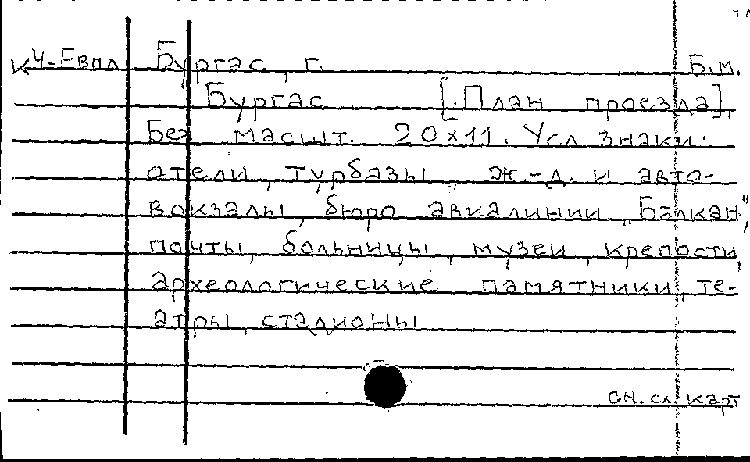 К4-Евпл Бургас, г. Б.м.
Бургас [План проезда].
Без масшт. 20х11. Усл. знаки:
отели, турбазы, ж.-д. и авто-
вокзалы, бюро авиалинии „Балкан",
почты, больницы, музеи, крепости,
археологические памятники, те-
атры, стадионы
сн. сл. карт